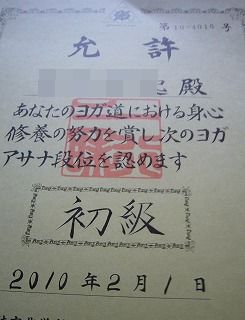 第10-4016号
允許
殿
あなたのヨガ道における身心
修養の努力を賞し次のヨガ
アサナ段位を認めます
初級
2010年2月1日